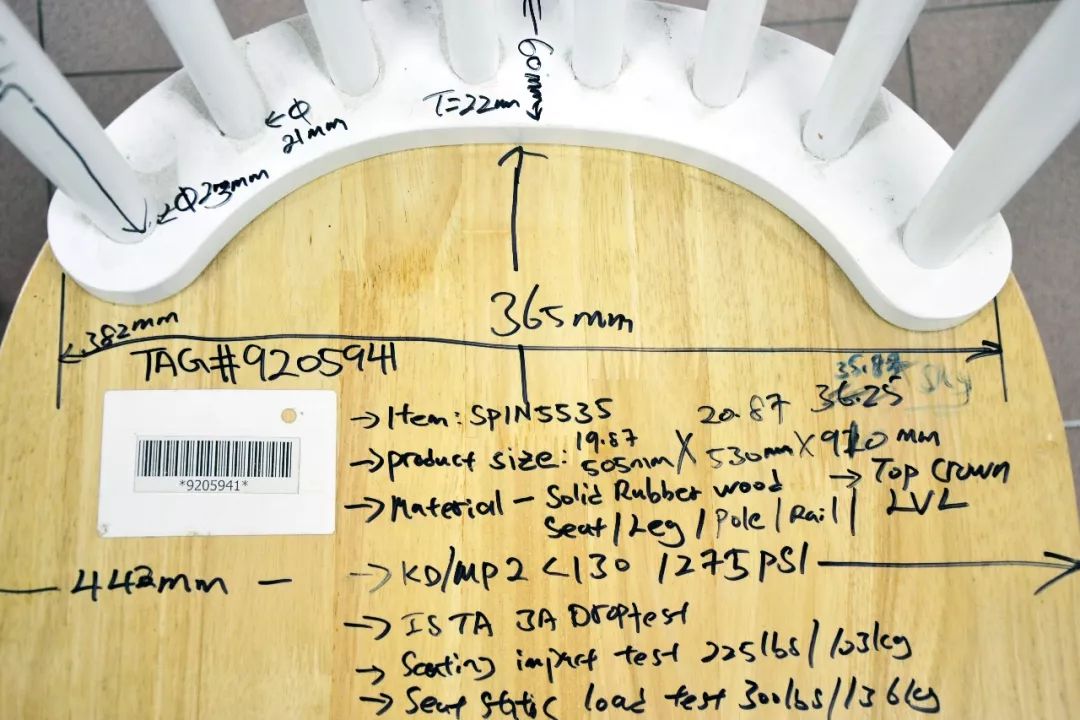 60mm
T=22mm
Φ
21mm
Φ23mm
365mm
382mm
TAG#9205941
*9205941*
→ Item: SPIN5535
19.87 20.87 36.25
→ product size: 505mm X 530mm X 910 mm
→ Material - Solid Rubber wood → Top Crown
Seat / Leg / Pole / Rail | LVL
442mm
→ KD/MP2 <130 1275 PSI
→ ISTA 3A Droptest
→ Seating impact test 225lbs/103kg
→ Seat static load test 300lbs/136kg